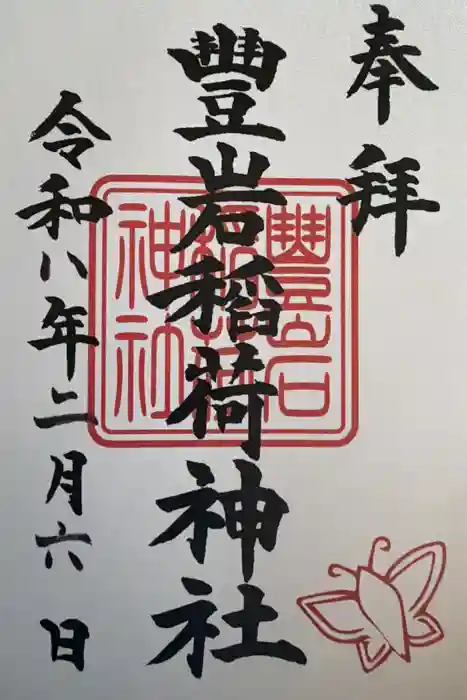 奉拝
豐岩稲荷神社
豐岩稲荷神社
令和八年二月六日